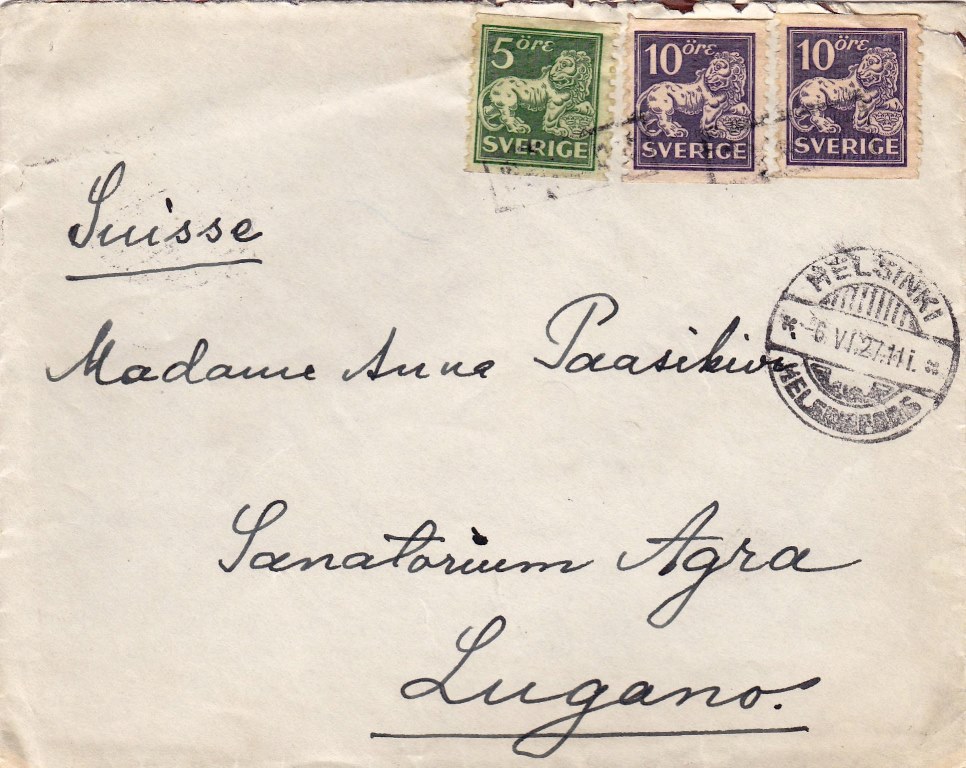 5 öre
SVERIGE
10 öre
SVERIGE
10 öre
SVERIGE
Suisse
HELSINKI
6.VI.27.11 i.
HELSINGFORS
Madame Anna Paasikivi
Sanatorium Agra
Lugano.